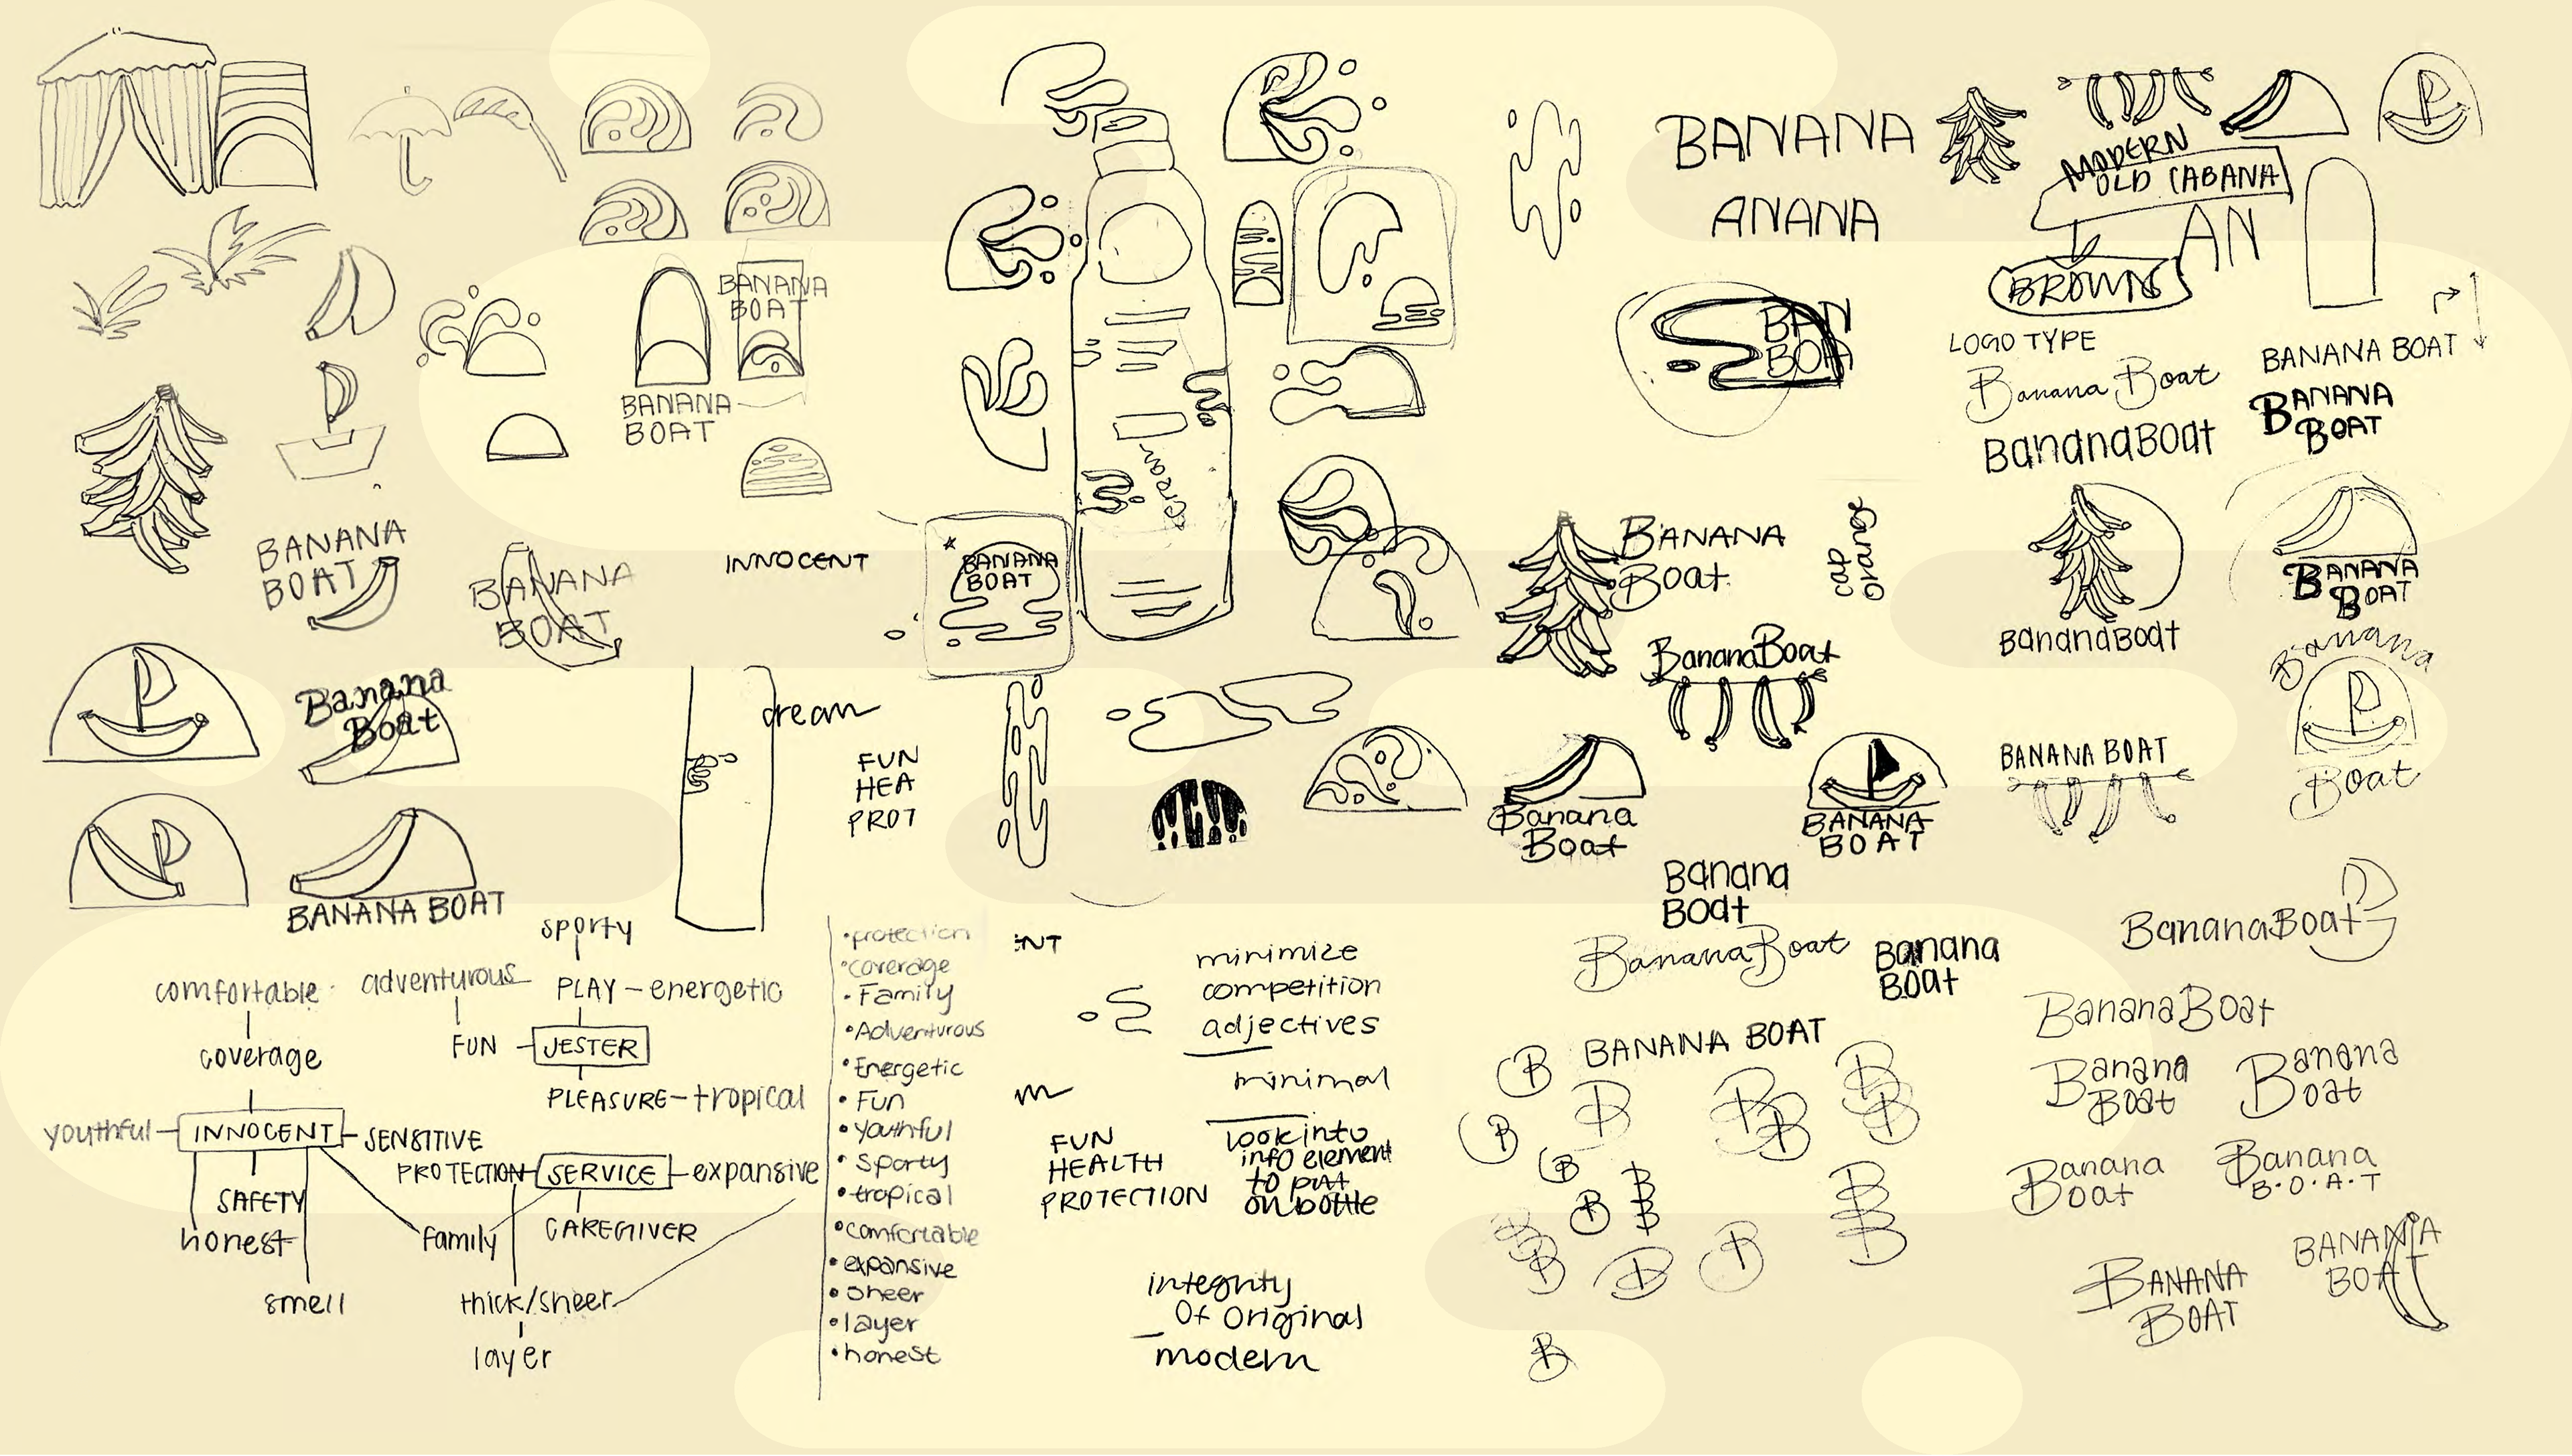 BANANA
BOAT
BANANA
BOAT
BANANA
BOAT
BANANA
BOAT
INNOCENT
Banana
Boat
BANANA BOAT
cream
FUN
HEA
PROT
BANANA
BOAT
cream
BANANA
ANANA
BAN
BOA
MODERN
OLD CABANA
AN
BROWN
LOGO TYPE
Banana Boat
BananaBoat
BANANA BOAT
BANANA
BOAT
BANANA
Boat
cap
orange
BananaBoat
Banana
Boat
BANANA
BOAT
BananaBoat
BANANA
BOAT
Banana
Boat
BANANA BOAT
Banana
Boat
BananaBoat
Banana
Boat
BANANA BOAT
B
B
B
B
B
B
B
B
BananaBoat
BananaBoat
Banana
Boat
Banana
Boat
Banana
Boat
Banana
B.O.A.T
BANANA
BOAT
BANANA
BOAT
sporty
comfortable
adventurous
PLAY - energetic
coverage
FUN
JESTER
PLEASURE - tropical
youthful
INNOCENT
SENSITIVE
PROTECTION
SERVICE
expansive
SAFETY
honest
family
CAREGIVER
smell
thick/sheer
layer
•protection
•coverage
•Family
•Adventurous
•Energetic
•Fun
•youthful
•sporty
•tropical
•comfortable
•expansive
•sheer
•layer
•honest
minimize
competition
adjectives
minimal
FUN
HEALTH
PROTECTION
look into
info element
to put
on bottle
integrity
Of original
modern